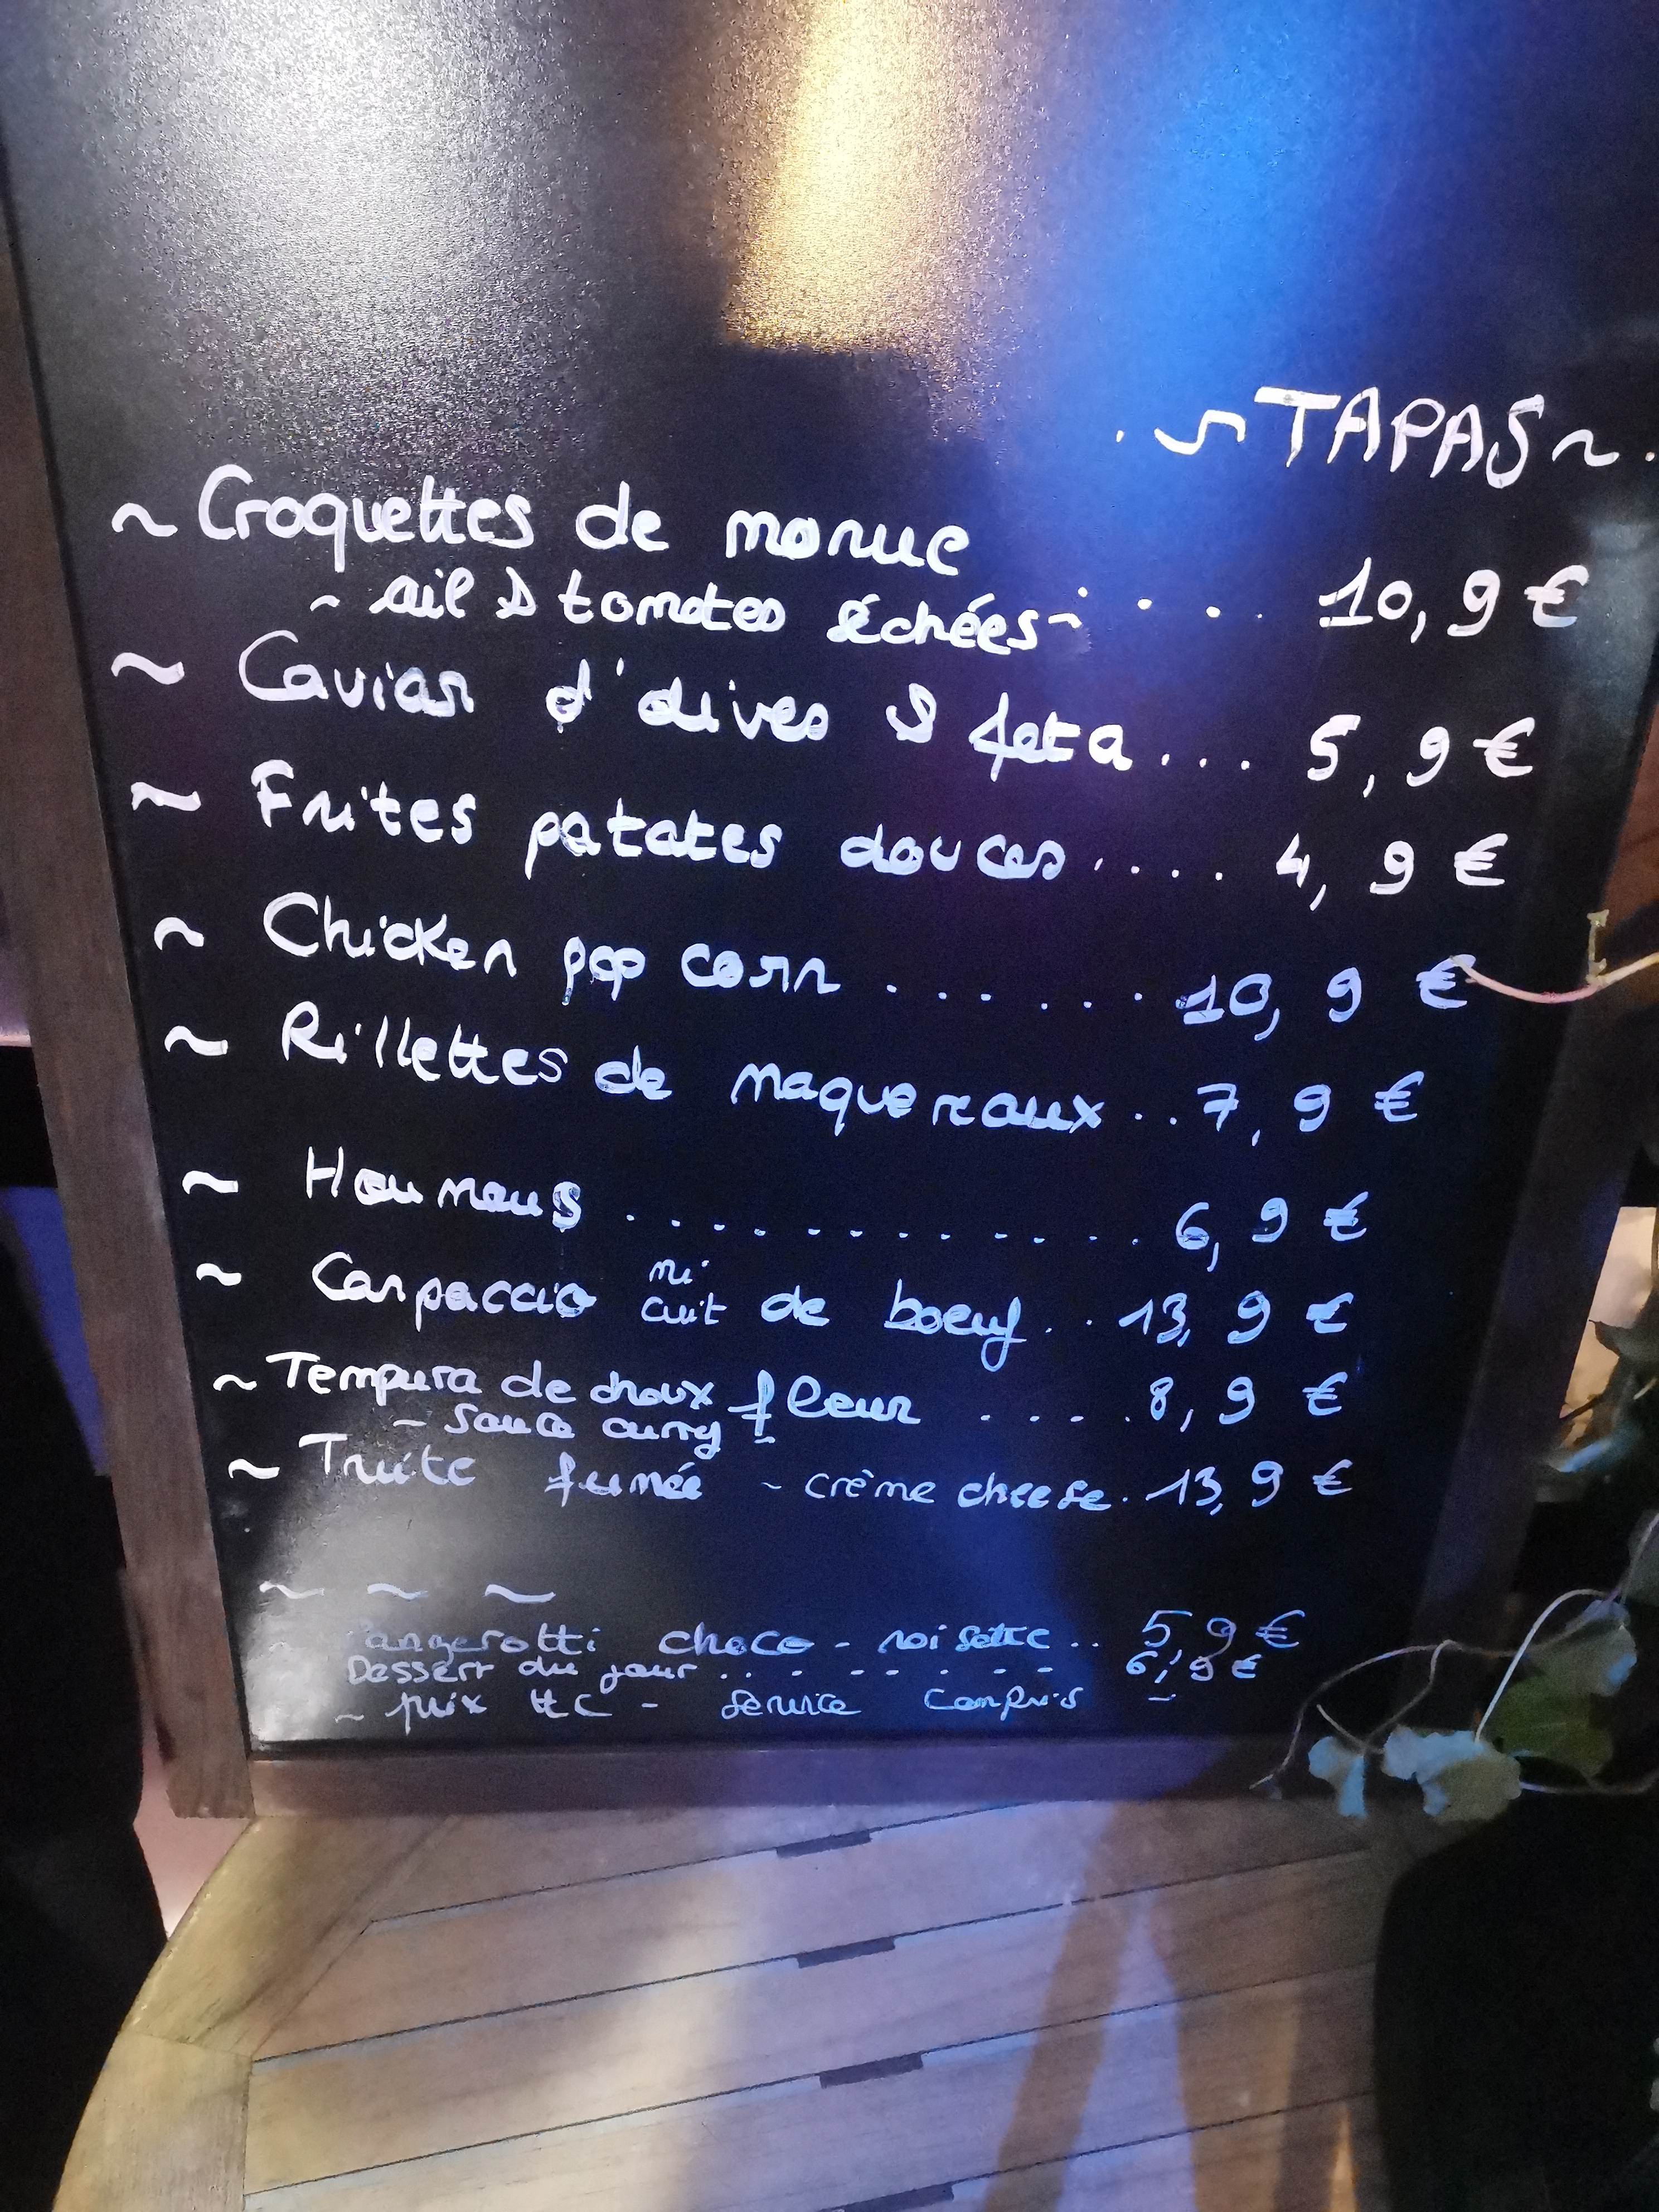 . ~ TAPAS ~ .
~ Croquettes de morue
~ ail & tomates séchées ~ . . . . 10,9 €
~ Caviar d'olives & feta . . . 5,9 €
~ Frites patates douces . . . . 4,9 €
~ Chicken pop corn . . . . . . 10,9 €
~ Rillettes de maquereaux . . 7,9 €
~ Houmous . . . . . . . . . . . . 6,9 €
~ Carpaccio mi cuit de boeuf . . 13,9 €
~ Tempura de choux fleur . . . . 8,9 €
~ sauce curry ~
~ Truite fumée ~ crème cheese . 13,9 €
~ ~ ~
~ Panzerotti choco - noisette . . 5,9 €
Dessert du jour . . . - - - - - 6,9 €
~ prix ttc - service compris ~